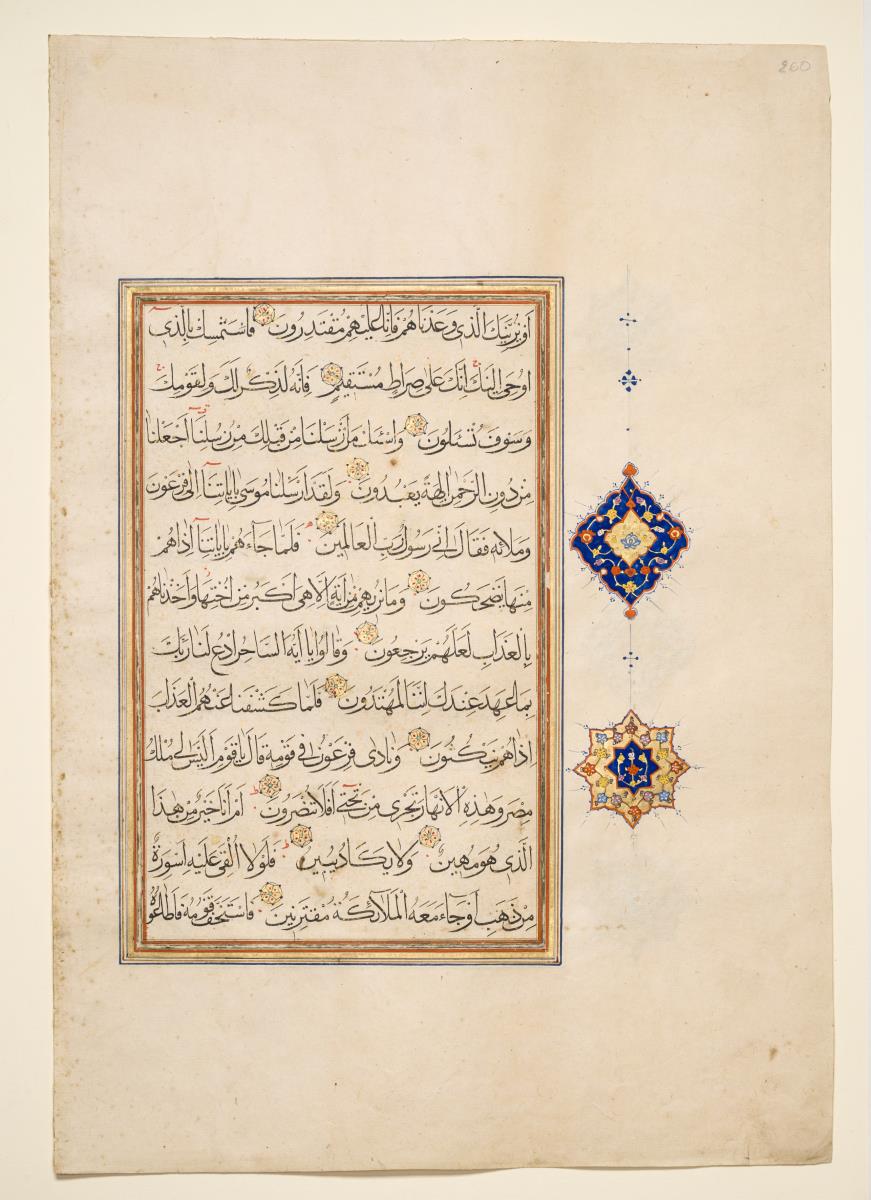 260
اَوْ نُرِيَنَّكَ الَّذى وَعَدْنَاهُمْ فَاِنَّا عَلَيْهِمْ مُقْتَدِرُونَ فَاسْتَمْسِكْ بِالَّذى
اُوحِىَ اِلَيْكَ اِنَّكَ عَلى صِرَاطٍ مُسْتَقِيمٍ وَاِنَّهُ لَذِكْرٌ لَكَ وَلِقَوْمِكَ
وَسَوْفَ تُسْئَلُونَ وَاسْئَلْ مَنْ اَرْسَلْنَا مِنْ قَبْلِكَ مِنْ رُسُلِنَا اَجَعَلْنَا
مِنْ دُونِ الرَّحْمٰنِ اٰلِهَةً يُعْبَدُونَ وَلَقَدْ اَرْسَلْنَا مُوسى بِاٰيَاتِنَا اِلى فِرْعَوْنَ
وَمَلَائِهِ فَقَالَ اِنّى رَسُولُ رَبِّ الْعَالَمِينَ فَلَمَّا جَاءَهُمْ بِاٰيَاتِنَا اِذَا هُمْ
مِنْهَا يَضْحَكُونَ وَمَا نُرِيهِمْ مِنْ اٰيَةٍ اِلَّا هِىَ اَكْبَرُ مِنْ اُخْتِهَا وَاَخَذْنَاهُمْ
بِالْعَذَابِ لَعَلَّهُمْ يَرْجِعُونَ وَقَالُوا يَا اَيُّهَ السَّاحِرُ ادْعُ لَنَا رَبَّكَ
بِمَا عَهِدَ عِنْدَكَ اِنَّنَا لَمُهْتَدُونَ فَلَمَّا كَشَفْنَا عَنْهُمُ الْعَذَابَ
اِذَا هُمْ يَنْكُثُونَ وَنَادى فِرْعَوْنُ فى قَوْمِهِ قَالَ يَا قَوْمِ اَلَيْسَ لى مُلْكُ
مِصْرَ وَهٰذِهِ الْاَنْهَارُ تَجْرى مِنْ تَحْتى اَفَلَا تُبْصِرُونَ اَمْ اَنَا خَيْرٌ مِنْ هٰذَا
الَّذى هُوَ مَهِينٌ وَلَا يَكَادُ يُبِينُ فَلَوْلَا اُلْقِىَ عَلَيْهِ اَسْوِرَةٌ
مِنْ ذَهَبٍ اَوْ جَاءَ مَعَهُ الْمَلَائِكَةُ مُقْتَرِنِينَ فَاسْتَخَفَّ قَوْمَهُ فَاَطَاعُوهُ